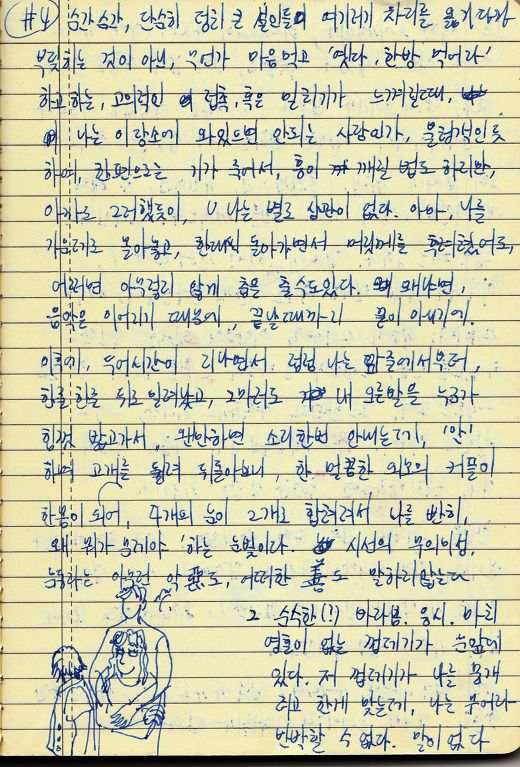 #4 순간순간, 단순히 덩치 큰 성인들이 여기저기 자리를 옮기다가
부딪치는 것이 아닌, 무언가 마음먹고 '옛다, 한방 먹어라'
하고 하는, 고의적인 접촉, 혹은 밀치기가 느껴질때,
나는 이 장소에 와있으면 안되는 사람인가, 불청객인 듯
하여, 한편으로는 기가 죽어서, 흥이 깨질 법도 하지만,
아까도 그러했듯이, 나는 별로 상관이 없다. 아마, 나를
가운데로 몰아놓고, 한대씩 돌아가면서 머릿께를 후려쳤어도,
어쩌면 아무렇지 않게 춤을 출 수도 있다. 왜냐하면,
음악은 이어지기 때문에, 끝날때까지 끝이 아니기에.
이후에, 두어시간이 지나면서 점점 나는 맨 앞에서부터,
한줄한줄 뒤로 밀려났고, 그마저도 내 오른발을 누가
힘껏 밟고가서, 왠만하면 소리한번 안내는데, '악'
하며 고개를 돌려 뒤돌아보니, 한 멀끔한 외모의 커플이
한몸이 되어, 4개의 눈이 2개로 합쳐져서 나를 빤히,
왜 뭐가 문제야 '하는 눈빛이다. 시선의 무의미성,
눈동자는 아무런 악惡도, 어떠한 善도 말하지않는다
그 순수한(!) 바라봄. 응시. 마치
영혼이 없는 껍데기가 눈앞에
있다. 저 껍데기가 나를 뭉개
려고 한게 맞는데, 나는 무어라
반박할 수 없다. 말이 없다